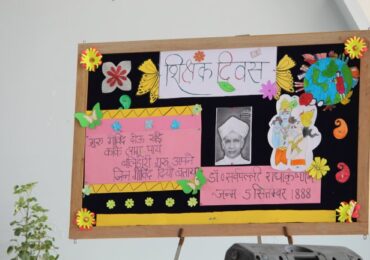 शिक्षक दिवस
गुरु गोविंद दोऊ खड़े
काके लागूं पाय
बलिहारी गुरु आपने
जिन गोविंद दियो बताय
डॉ० सर्वपल्ली राधाकृष्णन
जन्म 5 सितम्बर 1888